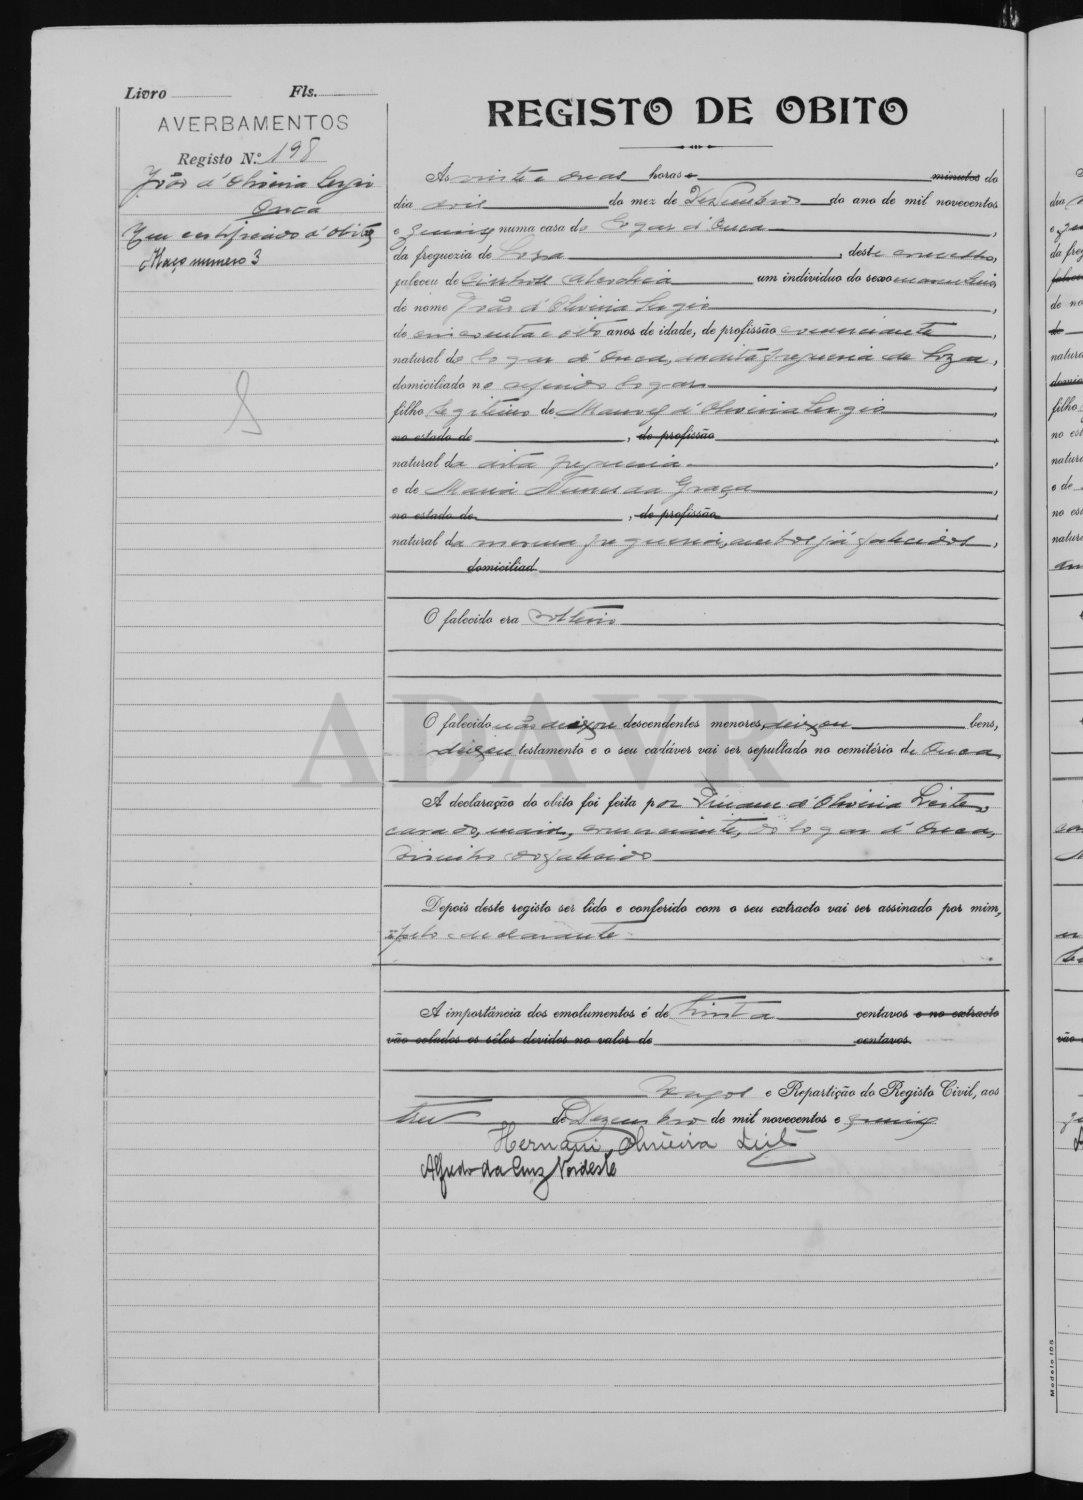 Livro Fls.
AVERBAMENTOS
Registo N.º 198
João d'Oliveira Sergio
Ouca
Um certificado d'obito
Maço numero 3
S
REGISTO DE OBITO
Às vinte e duas horas e minutos do
dia dois do mez de Dezembro do ano de mil novecentos
e quinze numa casa do Logar d'Ouca,
da freguezia de Soza, deste concelho,
faleceu de um individuo do sexo masculino,
de nome João d'Oliveira Sergio,
de cincoenta e oito anos de idade, de profissão comerciante,
natural do logar d'Ouca, da dita freguezia de Soza,
domiciliado no referido logar,
filho legitimo de Manoel d'Oliveira Sergio,
no estado de, de profissão
natural da dita freguezia,
e de Maria Nunes da Graça,
no estado de, de profissão
natural da mesma freguezia, ambos já falecidos,
domiciliad
O falecido era solteiro
ADAVR
O falecido não deixou descendentes menores, deixou bens,
deixou testamento e o seu cadáver vai ser sepultado no cemitério de Ouca
A declaração do obito foi feita por d'Oliveira Leite,
casado, maior, comerciante, do logar d'Ouca,
do falecido
Depois deste registo ser lido e conferido com o seu extracto vai ser assinado por mim,
e pelo declarante.
A importância dos emolumentos é de trinta centavos e no extracto
vão colados os sêlos devidos no valor de centavos.
Vagos e Repartição do Registo Civil, aos
tres de Dezembro de mil novecentos e quinze
Hernani Oliveira Leite
Alfredo da Cruz Nordeste
Modelo 105